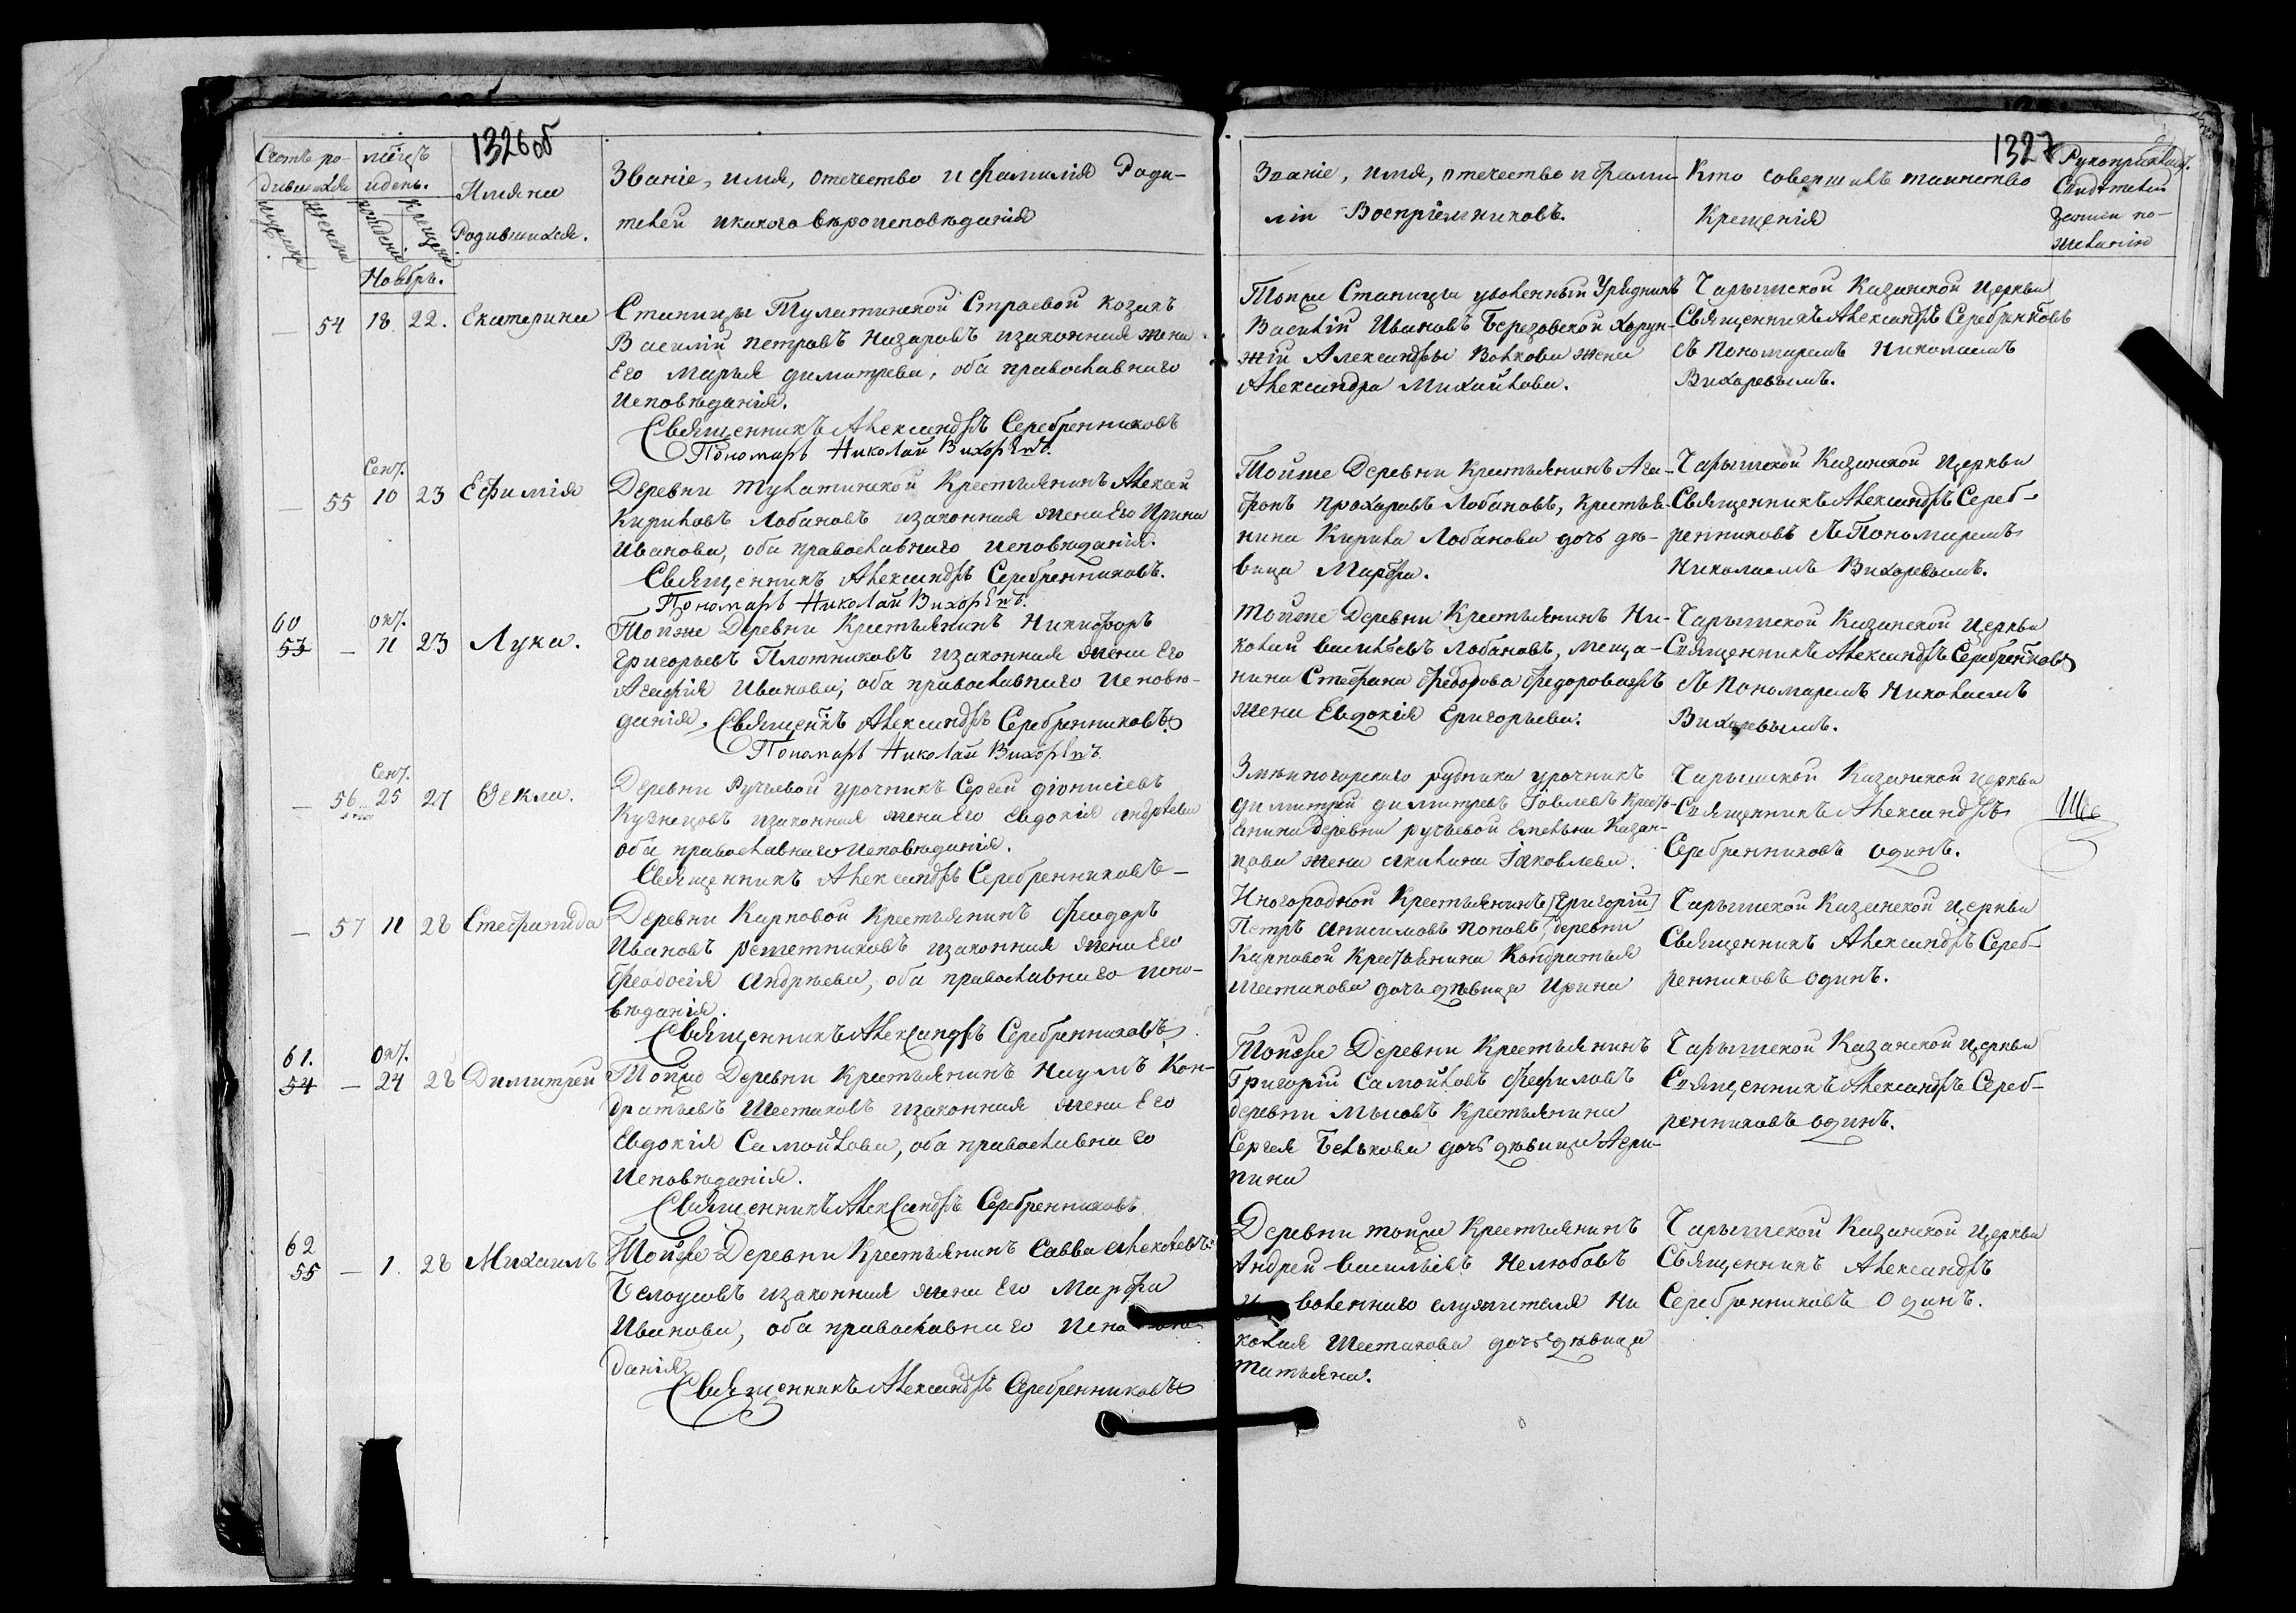 1326об
Счетъ ро-
дившихся
мѣсяцъ
и день.
Имяна
Родившихся.
Званіе, имя, отечество и фамилія Роди-
телей и какого вѣроисповѣданія
Ноябрь.
— 54 18 22. Екатерина
Станицы Тулатинской Строевой козакъ
Василій Петровъ Назаровъ и законная жена
Его Марья Димитрева, оба православнаго
исповѣданія.
Священникъ Александръ Серебренниковъ
Пономарь Николай Вихоревъ.
Сент.
— 55 10 23 Ефимія
Деревни Тулатинской Крестьянинъ Алексей
Кириловъ Лобановъ и законная жена Его Ирина
Иванова, оба православнаго исповѣданія.
Священникъ Александръ Серебренниковъ.
Пономарь Николай Вихоревъ.
60 Окт.
53 — 11 23 Лука.
Тойже Деревни Крестьянинъ Никифоръ
Григорьевъ Плотниковъ и законная жена Его
Агафія Иванова, оба православнаго исповѣ-
данія. Священникъ Александръ Серебренниковъ
Пономарь Николай Вихоревъ
Сент.
— 56 25 27 Ѳекла.
Деревни Ручьевой урочникъ Сергей Діонисіевъ
Кузнецовъ и законная жена Его Евдокія Андреева
оба православнаго исповѣданія.
Священникъ Александръ Серебренниковъ —
— 57 11 28 Стефанида
Деревни Карповой Крестьянинъ Феодоръ
Ивановъ Решетниковъ и законная жена Его
Феодосія Андрѣева, оба православнаго испо-
вѣданія.
Священникъ Александръ Серебренниковъ
61. Окт.
54 — 24 28 Димитрей
Тойже Деревни Крестьянинъ Наумъ Кон-
дратьевъ Шестаковъ и законная жена Его
Евдокія Самойлова, оба православнаго
исповѣданія.
Священникъ Александръ Серебренниковъ
62
55 — 1. 28 Михаилъ
Тойже Деревни Крестьянинъ Савва Алексеевъ
Белоусовъ и законная жена Его Марфа
Иванова, оба православнаго испо
данія.
Священникъ Александръ Серебренниковъ
1327
Званіе, имя, отечество и фами-
ліи Воспріемниковъ.
Кто совершилъ таинство
Крещенія
Рукоприкладст.
Свидѣтелей
записи по-
желанію
Тойже Станицы уволенный Урядникъ
Василій Ивановъ Березовской Хорун-
жій Александры Волкова жена
Александра Михайлова.
Чарышской Казанской Церкви
Священникъ Александръ Серебренниковъ
съ Пономаремъ Николаемъ
Вихоревымъ.
Тойже Деревни Крестьянинъ Ага-
фонъ Прохоровъ Лобановъ, Крестья-
нина Кирила Лобанова дочь дѣ-
вица Марфа.
Чарышской Казанской Церкви
Священникъ Александръ Сереб-
ренниковъ съ Пономаремъ
Николаемъ Вихоревымъ.
Тойже Деревни Крестьянинъ Ни-
колай Васильевъ Лобановъ, меща-
нина Стефана Федорова Федоровыхъ
жена Евдокія Григорьева.
Чарышской Казанской Церкви
Священникъ Александръ Серебренниковъ
съ Пономаремъ Николаемъ
Вихоревымъ.
Змѣиногорскаго рудника урочникъ
Димитрій Димитревъ Іовлевъ Кресть-
янина деревни Ручьевой Емельяна Казан-
цова жена Акилина Іаковлева.
Чарышской Казанской Церкви
Священникъ Александръ
Серебренниковъ одинъ.
Иногородной Крестьянинъ [Григорій]
Петръ Анисимовъ Поповъ, деревни
Карповой Крестьянина Кондратья
Шестакова дочь дѣвица Ирина
Чарышской Казанской Церкви
Священникъ Александръ Сереб-
ренниковъ одинъ.
Тойже Деревни Крестьянинъ
Григорій Самойловъ Фефиловъ
деревни Мысовъ Крестьянина
Сергея Белькова дочь дѣвица Агри-
пина
Чарышской Казанской Церкви
Священникъ Александръ Сереб-
ренниковъ одинъ.
Деревни тойже Крестьянинъ
Андрей Васильевъ Нелюбовъ
воленнаго служителя Ни
колая Шестакова дочь дѣвица
Татьяна.
Чарышской Казанской Церкви
Священникъ Александръ
Серебренниковъ Одинъ.